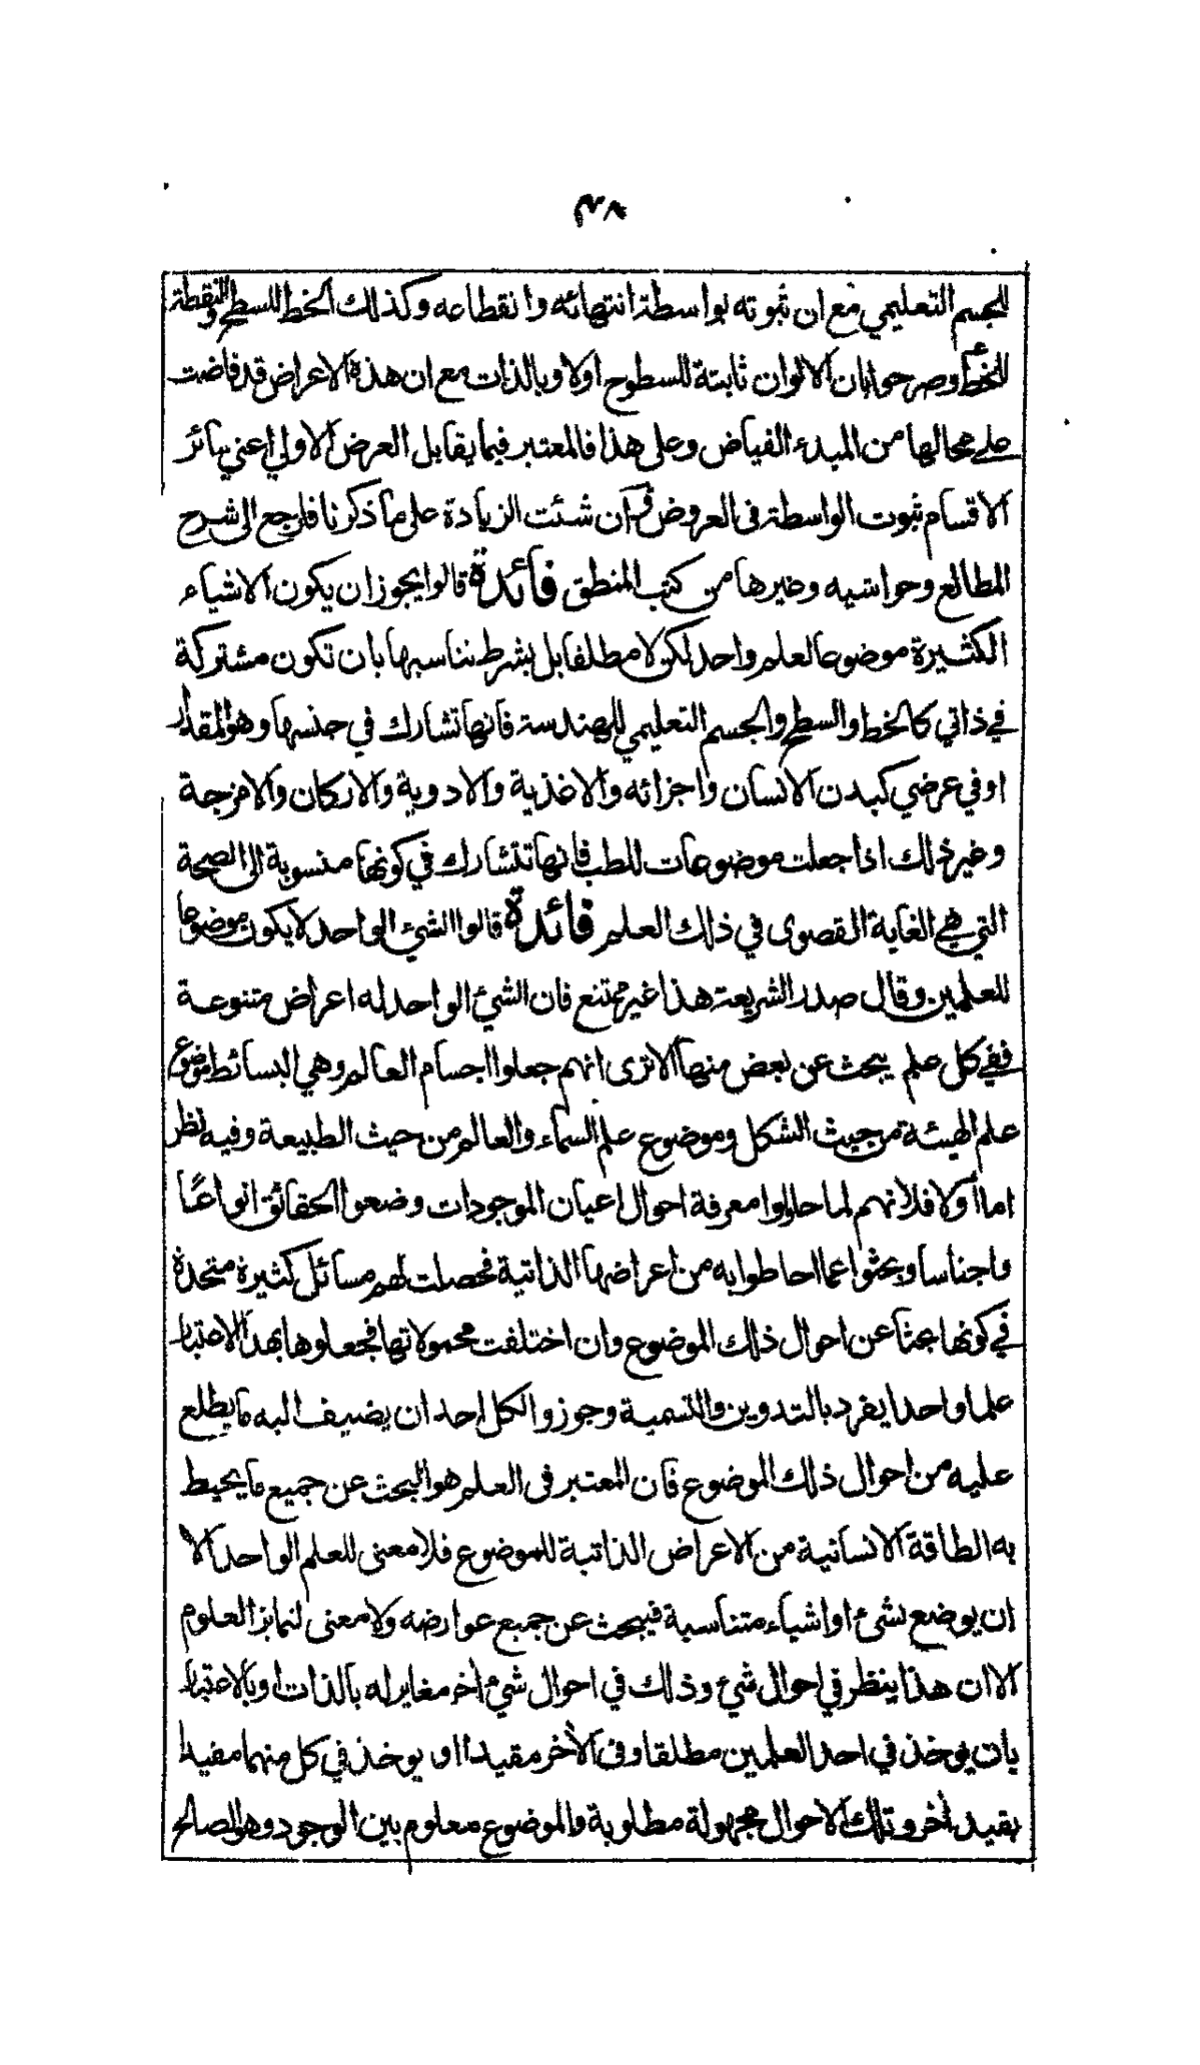 ٣٨
للجسم التعليمي مع ان ثبوته بواسطة انتهائه وانقطاعه وكذلك الخط للسطح والنقطة
للخط وصرحوا بان الالوان ثابتة للسطوح اولا وبالذات مع ان هذه الاعراض قد فاضت
على محالها من المبدء الفياض وعلى هذا فالمعتبر فيما يقابل العرض الاولي اعني سائر
الاقسام ثبوت الواسطة فى العروض وان شئت الزيادة على ما ذكرنا فارجع الى شرح
المطالع وحواشيه وغيرها من كتب المنطق فائدة قالوا يجوز ان يكون الاشياء
الكثيرة موضوعا لعلم واحد لكن لا مطلقا بل بشرط تناسبها بان تكون مشتركة
في ذاتي كالخط والسطح والجسم التعليمي للهندسة فانها تشارك في جنسها وهو المقدار
او في عرضي كبدن الانسان واجزائه والاغذية والادوية والاركان والامزجة
وغير ذلك اذا جعلت موضوعات للطب فانها تتشارك في كونها منسوبة الى الصحة
التي هي الغاية القصوى في ذلك العلم فائدة قالوا الشئ الواحد لا يكون موضوعا
للعلمين وقال صدر الشريعة هذا غير ممتنع فان الشئ الواحد له اعراض متنوعة
ففي كل علم يبحث عن بعض منها الا ترى انهم جعلوا اجسام العالم وهي البسائط موضوع
علم الهيئة من حيث الشكل وموضوع علم السماء والعالم من حيث الطبيعة وفيه نظر
اما أولا فلانهم لما حاولوا معرفة احوال اعيان الموجودات وضعوا الحقائق انواعًا
واجناسا وبحثوا عما احاطوا به من اعراضها الذاتية فحصلت لهم مسائل كثيرة متحدة
في كونها بحثا عن احوال ذلك الموضوع وان اختلفت محمولاتها فجعلوها بهذا الاعتبار
علما واحدا يفرد بالتدوين والتسمية وجوزوا لكل احد ان يضيف اليه ما يطلع
عليه من احوال ذلك الموضوع فان المعتبر فى العلم هو البحث عن جميع ما يحيط
به الطاقة الانسانية من الاعراض الذاتية للموضوع فلا معنى للعلم الواحد الا
ان يوضع شئ او اشياء متناسبة فيبحث عن جميع عوارضه ولا معنى لتمايز العلوم
الا ان هذا ينظر في احوال شئ وذلك في احوال شئ اخر مغاير له بالذات او بالاعتبار
بان يوخذ في احد العلمين مطلقا وفى الأخر مقيدا او يوخذ في كل منهما مقيدا
بقيد أخر وتلك الاحوال مجهولة مطلوبة والموضوع معلوم بين الوجود وهو الصالح